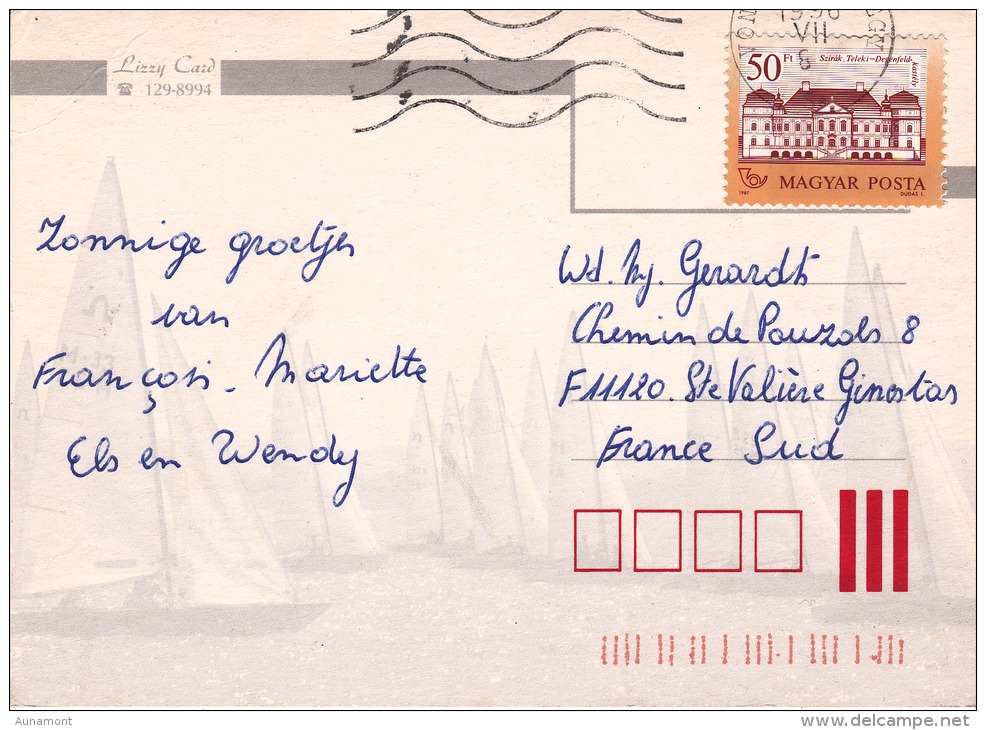 Lizzy Card
☎ 129-8994
1996
VII
50 Ft
Szirák, Teleki–Degenfeld-kastély
1987
MAGYAR POSTA
DUDÁS L.
Zonnige groetjes
van
François. Mariette
Els en Wendy
Wd. My. Gerardts
Chemin de Pouzols 8
F11120. Ste Valière Ginestas
France Sud
Aunamont
www.delcampe.net